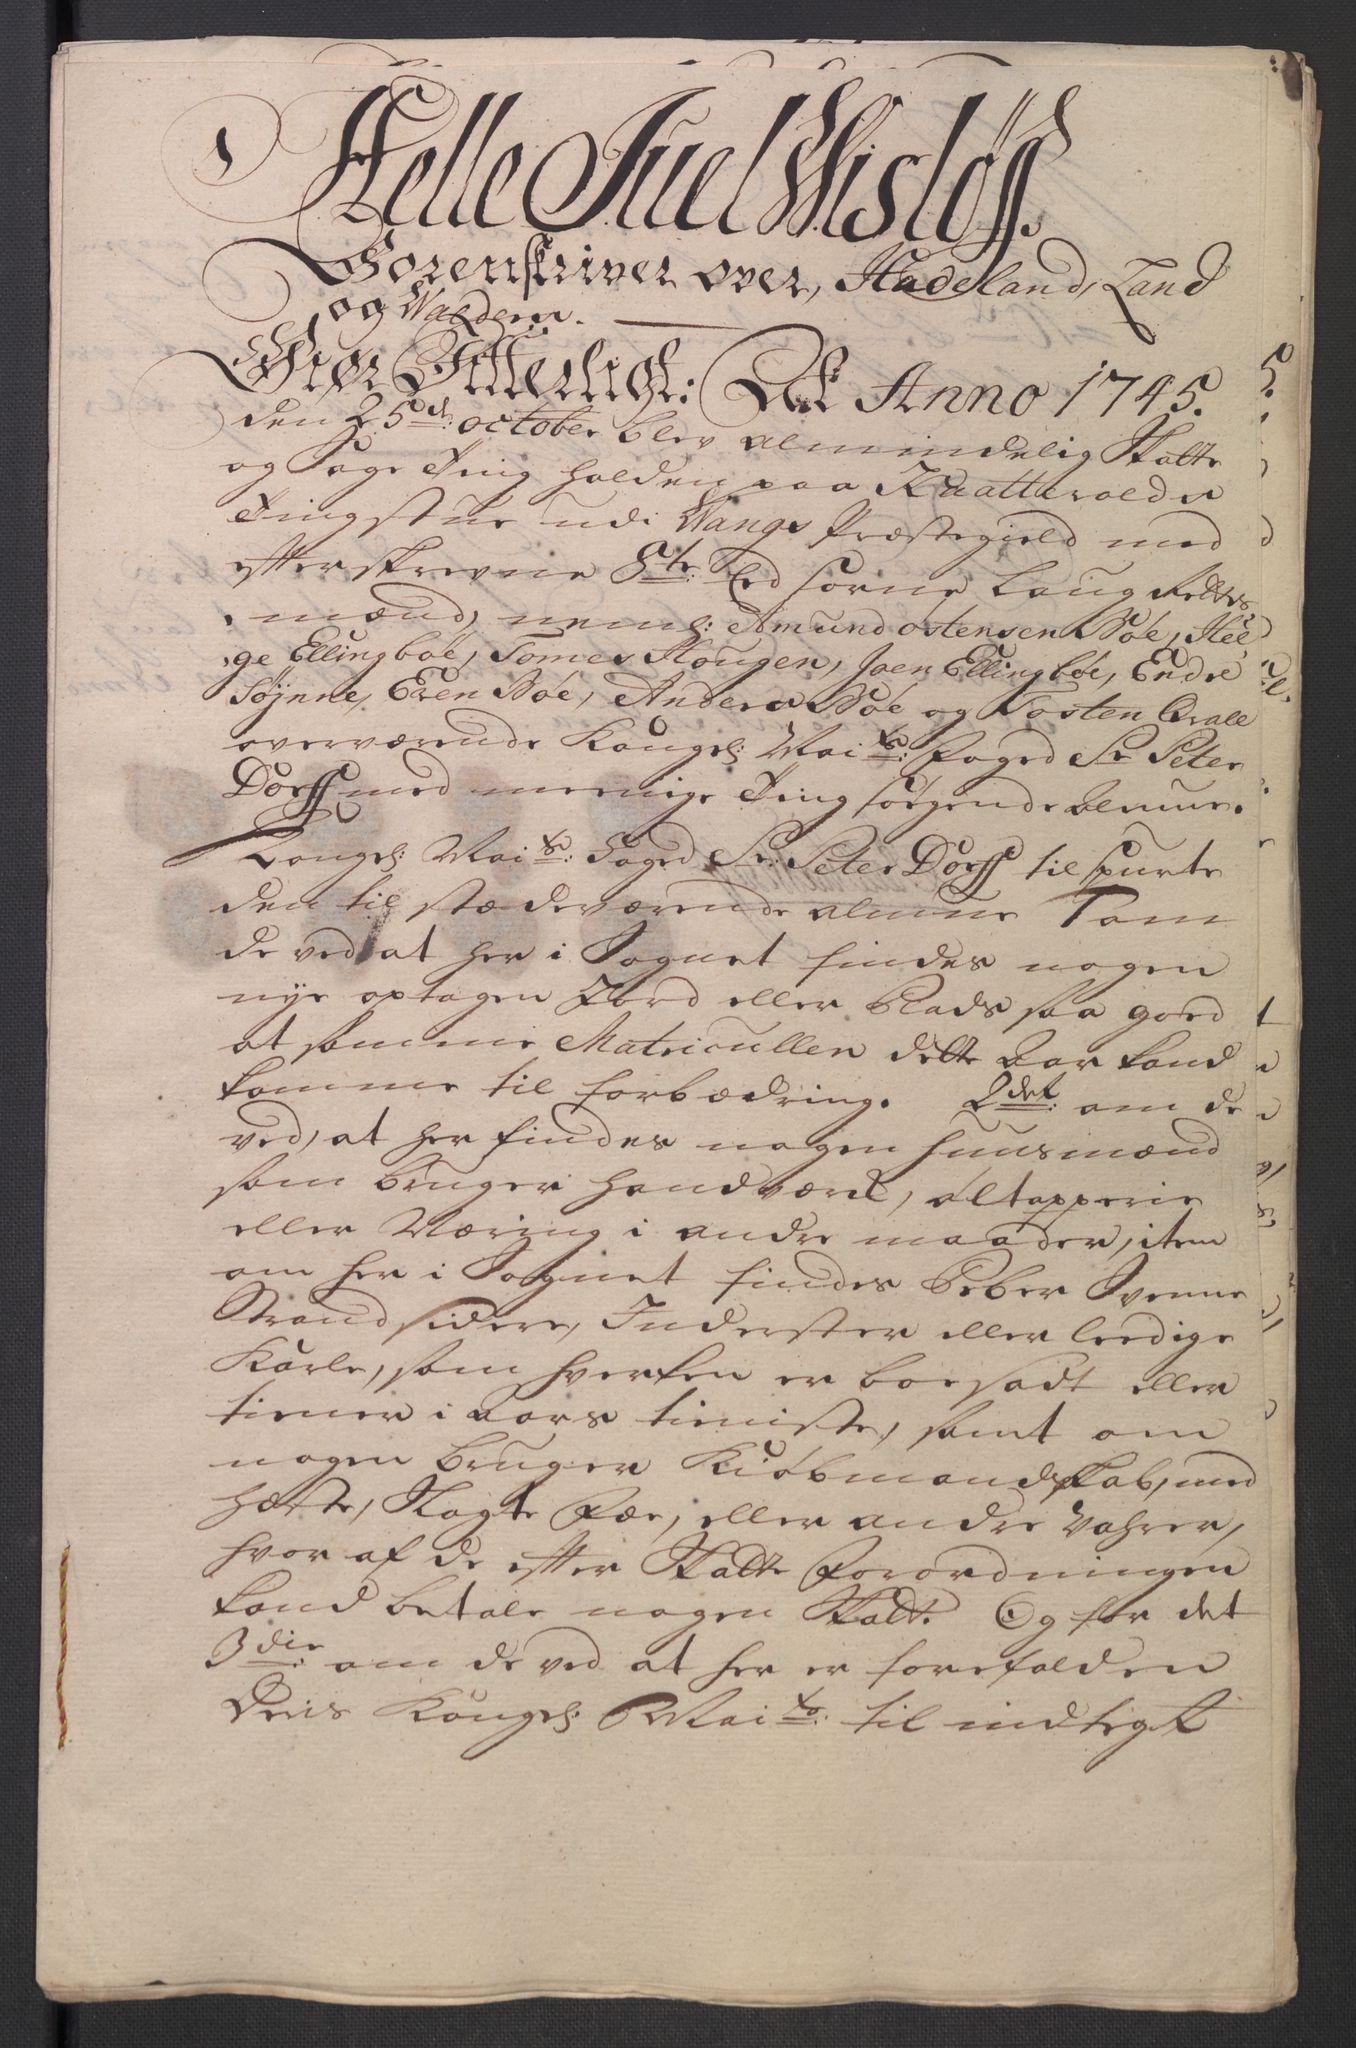 Helle Juel Wisløff.
Sorenskriver over, Hadeland, Land
og Walders.
Giør Vitterligt: At Anno 1745.
den 25de: october blev almindelig Skatte
og Sage Ting holden paa Kaatterolden
Tingstue udi Wangs Præstegield med
efterskrevne 8te: Eed sorne Laug Rettes
mænd, neml: Amund Østensen Bøe, Hel,
ge Ellingbøe, Tomes Hougen, Joen Ellingbøe, Endre
Søynne, Even Bøe, Anders Bøe og Tosten Qvale
overværende Kongel: Mai ts: Foged Sr. Peter
Dorff med meenige Ting søgende almue.
Kongel: Mai ts: Foged Sr: Peter Dorff til spurte
den til stædeværende almue om
de ved, at her i Sognet findes nogen
nye optagen Jord eller Plads saa goed
at samme Matricullen dette Aar kand
komme til forbædring. 2det: om de
ved, at her findes nogen huusmænd
som bruger handværk, øltapperie
eller Næring i andre maader, item
om her i Sognet findes Peber Svenne
Strandsidere, Inderster eller leedige
Karle, som hverken er boesadt eller
tiener i aars tieniste, samt om
nogen bruger Kiøbmandskab, med
heste, Slagte Fæe, eller andre Vahrer,
hvor af de efter Skatte Forordningen
kand betale nogen Skatt. Og for det
3die: om de ved at her er forefalden
Deris Kongel: Mai ts: til indtegt